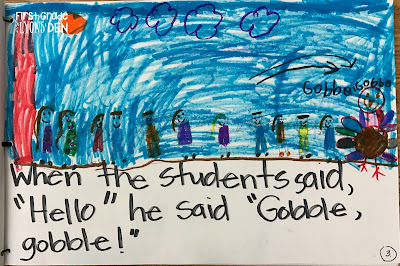 First-Grade
LYONS' DEN
Gobble Gobble
When the students said,
"Hello" he said "Gobble,
gobble!"
3